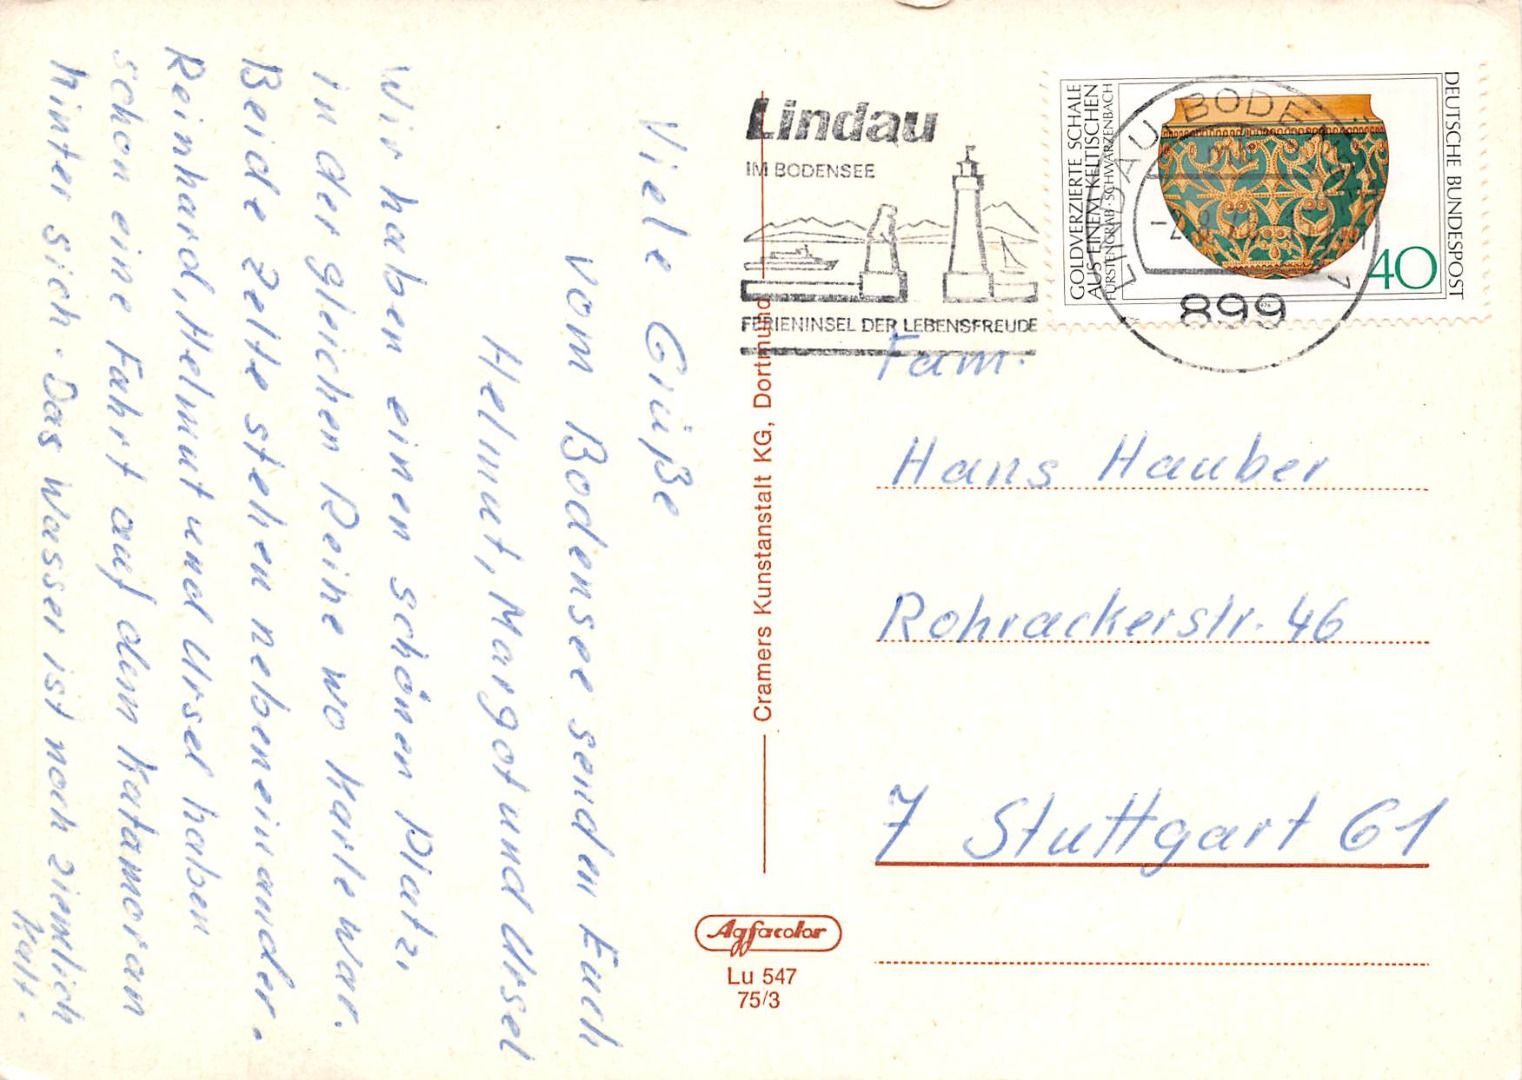 Viele Grüße
vom Bodensee senden Euch
Helmut, Margot und Ursel
Wir haben einen schönen Platz,
in der gleichen Reihe wo Karle war.
Beide Zelte stehen nebeneinander.
Reinhard, Helmut und Ursel haben
schon eine Fahrt auf dem Katamoran
hinter sich. Das Wasser ist noch ziemlich
kalt.
Lindau
IM BODENSEE
FERIENINSEL DER LEBENSFREUDE
GOLDVERZIERTE SCHALE
AUS EINEM KELTISCHEN
FÜRSTENGRAB · SCHWARZENBACH
DEUTSCHE BUNDESPOST
40
LINDAU, BODENSEE
899
Fam.
Hans Hauber
Rohrackerstr. 46
7 Stuttgart 61
Cramers Kunstanstalt KG, Dortmund
Agfacolor
Lu 547
75/3